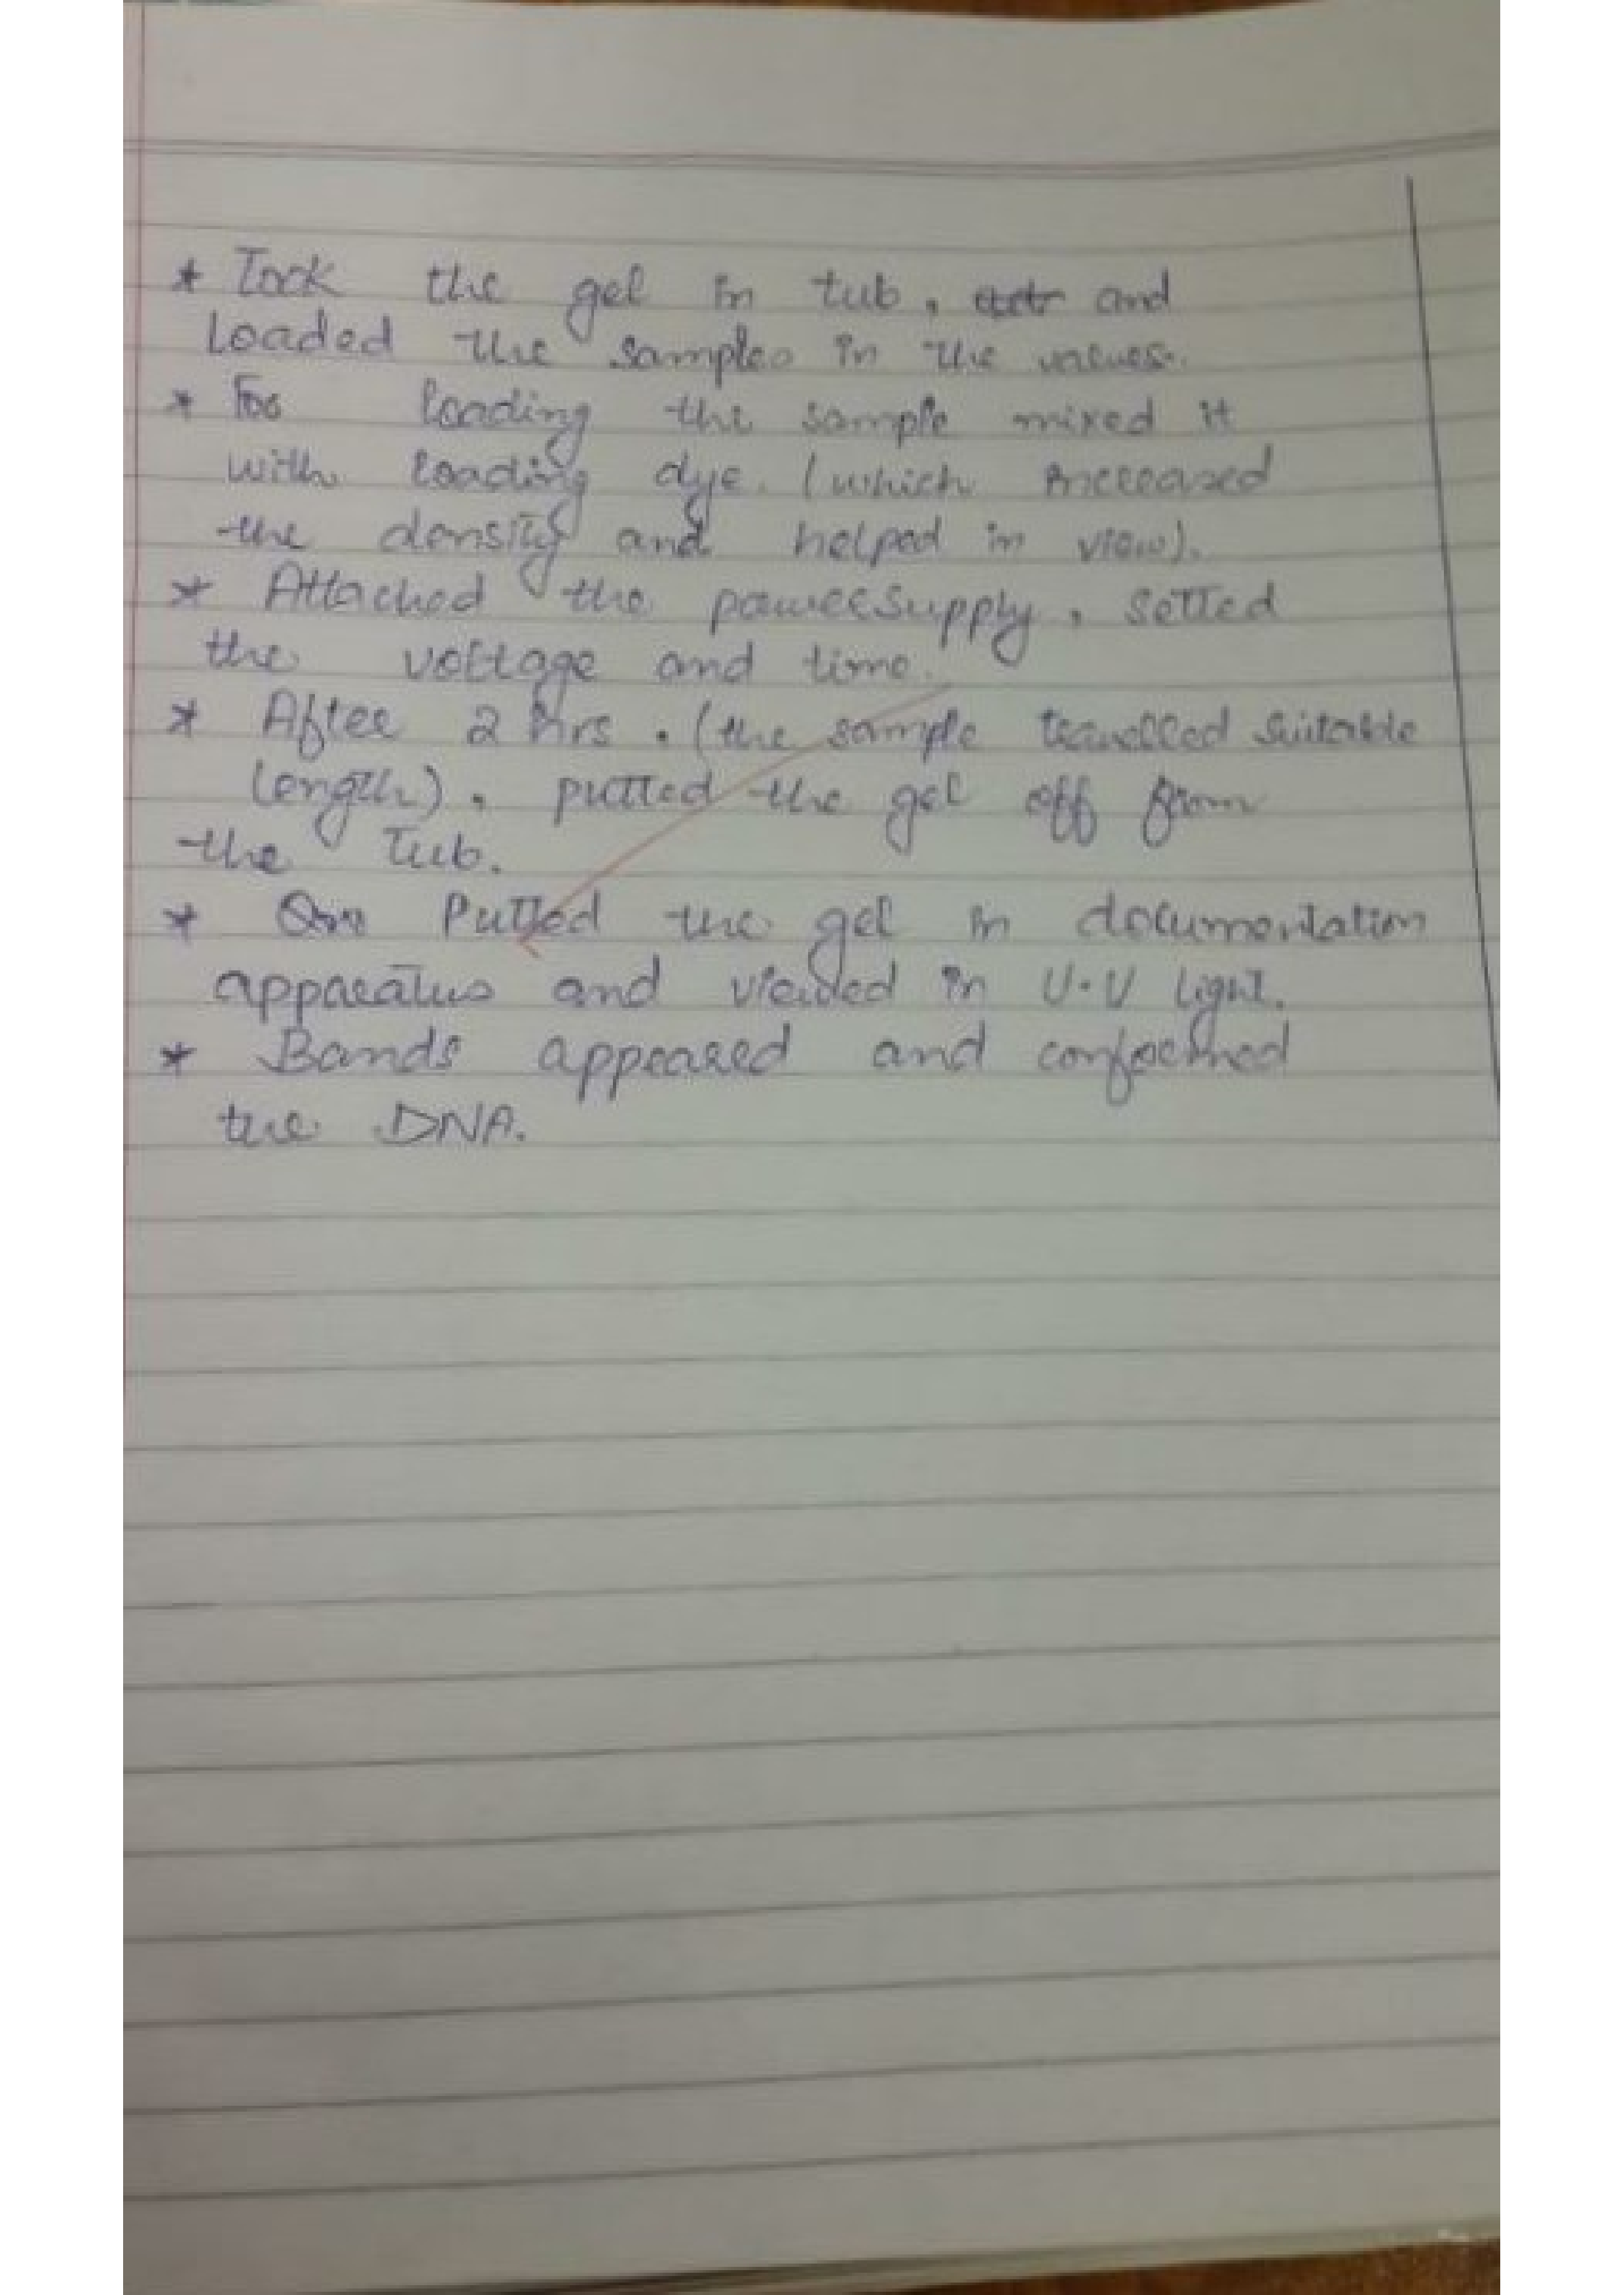 * Took the gel in tub, and
Loaded the samples in the
* For loading the sample mixed it
with loading dye. (which increased
the density and helped in view).
* Attached the powersupply, setted
the voltage and time.
* After 2 hrs. (the sample travelled suitable
length), putted the gel off from
the Tub.
* Putted the gel in documentation
apparatus and viewed in U.V light.
* Bands appeared and conformed
the DNA.